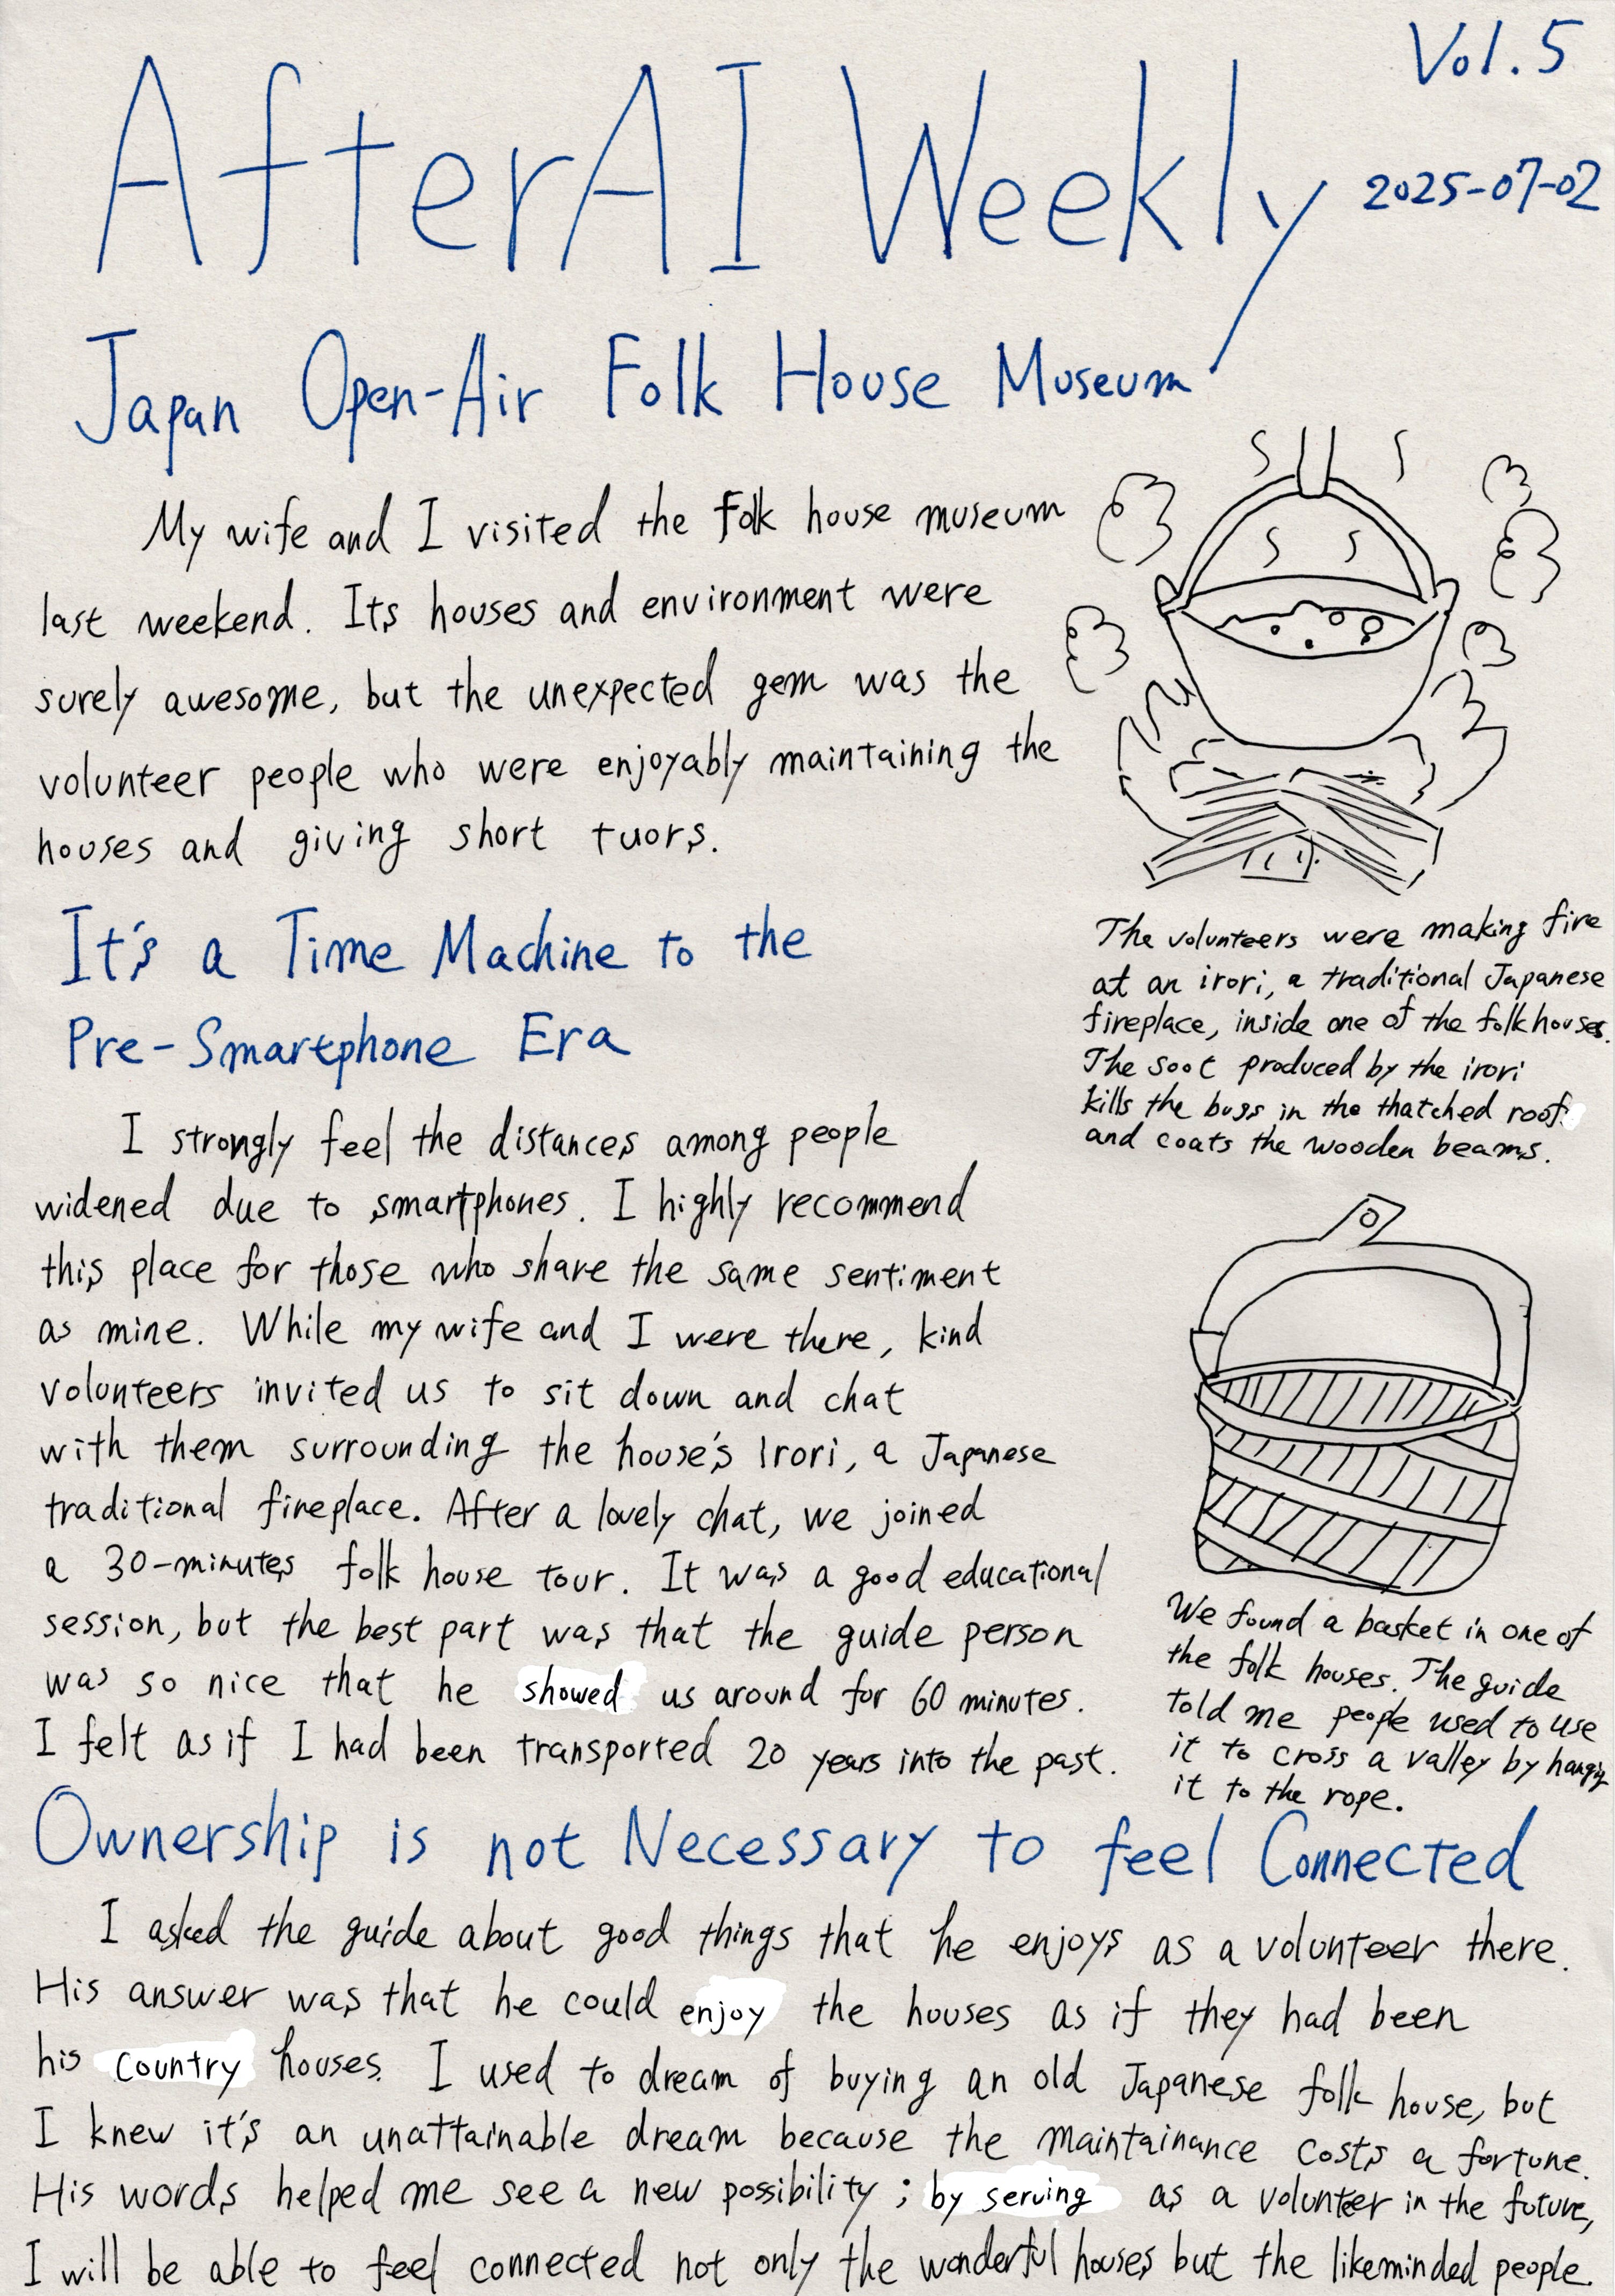 Vol. 5
AfterAI Weekly
2025-07-02
Japan Open-Air Folk House Museum
My wife and I visited the folk house museum
last weekend. Its houses and environment were
surely awesome, but the unexpected gem was the
volunteer people who were enjoyably maintaining the
houses and giving short tuors.
The volunteers were making fire
at an irori, a traditional Japanese
fireplace, inside one of the folk houses.
The soot produced by the irori
kills the bugs in the thatched roof
and coats the wooden beams.
It's a Time Machine to the
Pre-Smartphone Era
I strongly feel the distances among people
widened due to smartphones. I highly recommend
this place for those who share the same sentiment
as mine. While my wife and I were there, kind
volunteers invited us to sit down and chat
with them surrounding the house's Irori, a Japanese
traditional fireplace. After a lovely chat, we joined
a 30-minutes folk house tour. It was a good educational
session, but the best part was that the guide person
was so nice that he showed us around for 60 minutes.
I felt as if I had been transported 20 years into the past.
We found a basket in one of
the folk houses. The guide
told me people used to use
it to cross a valley by hanging
it to the rope.
Ownership is not Necessary to feel Connected
I asked the guide about good things that he enjoys as a volunteer there.
His answer was that he could enjoy the houses as if they had been
his country houses. I used to dream of buying an old Japanese folk house, but
I knew it's an unattainable dream because the maintainance costs a fortune.
His words helped me see a new possibility; by serving as a volunteer in the future,
I will be able to feel connected not only the wonderful houses but the likeminded people.